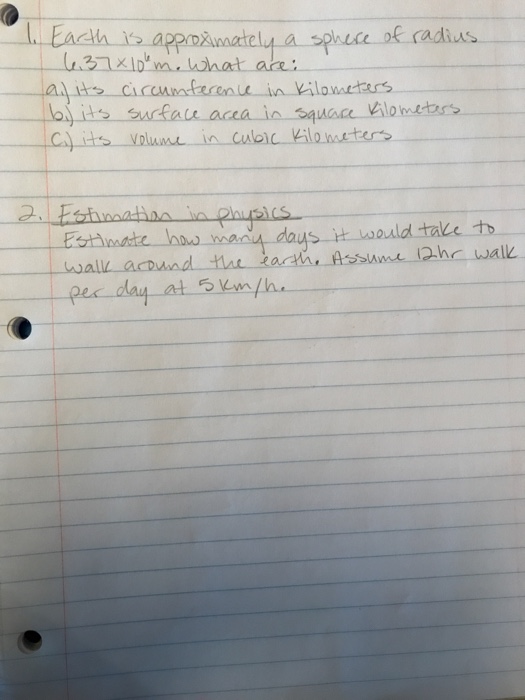 1. Earth is approximately a sphere of radius
6.37×10⁶m. What are:
a.) its circumference in kilometers
b.) its surface area in square kilometers
c.) its volume in cubic kilometers
2. Estimation in physics
Estimate how many days it would take to
walk around the earth. Assume 12hr walk
per day at 5km/h.